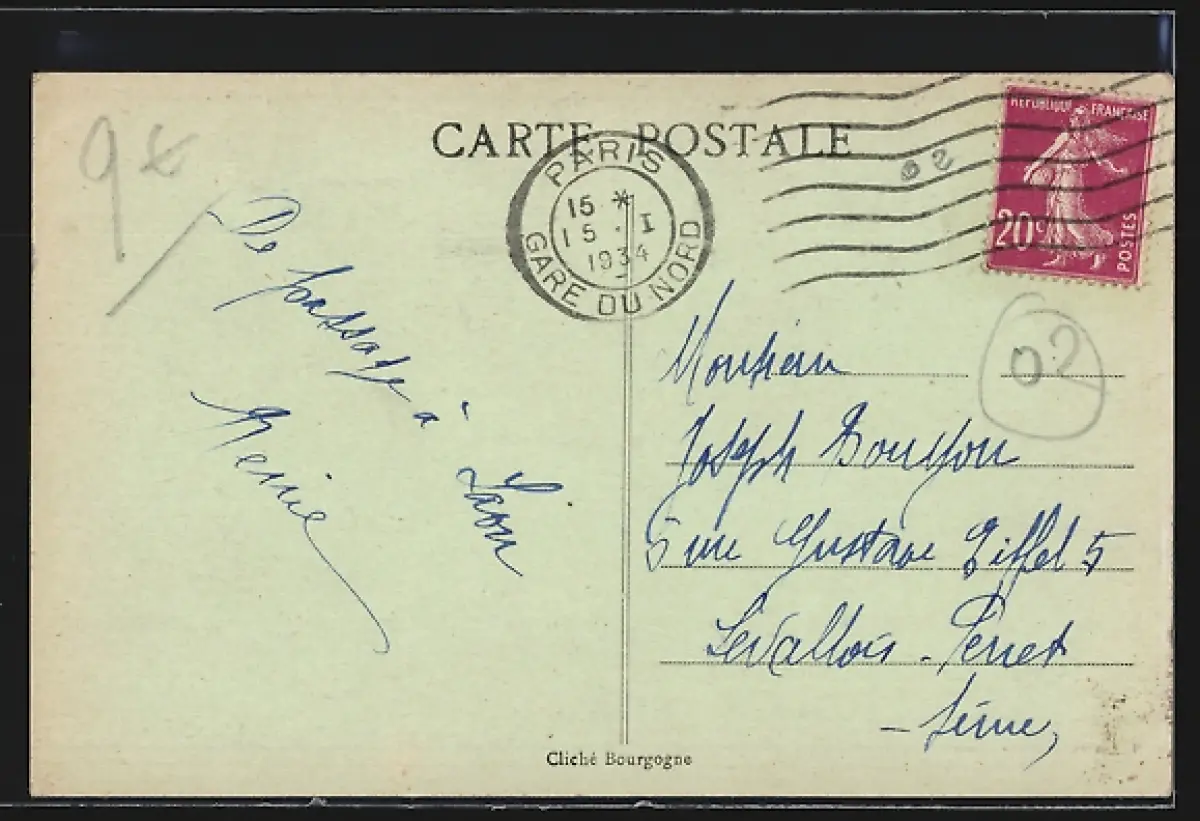 CARTE POSTALE
9€
PARIS
15 *
15 . I
1934
GARE DU NORD
REPUBLIQUE FRANÇAISE
20c
POSTES
02
02
De passage à
Laon
Monsieur
Joseph
5 rue Gustave Eiffel 5
Levallois-Perret
- Seine,
Cliché Bourgogne